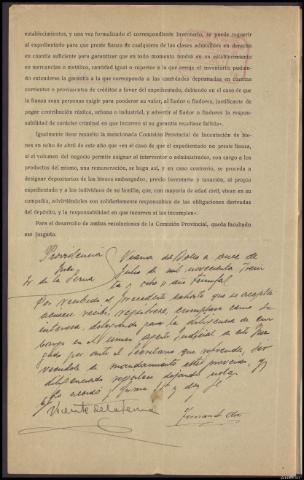 establecimientos, y una vez formalizado el correspondiente inventario, se puede requerir
al expedientado para que preste fianza de cualquiera de las clases admitidas en derecho
en cuantía suficiente para garantizar que en todo momento tendrá en su establecimiento
en mercancías o metálico, cantidad igual o superior a la que arroje el inventario pudién-
do extenderse la garantía a la que corresponda a las cantidades depositadas en cuentas
corrientes o provinientes de créditos a favor del expedientado, debiendo en el caso de que
la fianza sean personas exigir para ponderar su valor, al fiador o fiadores, justificante de
pagar contribución rústica, urbana o industrial, y advertir al fiador o fiadores la responsa-
bilidad de carácter criminal en que incurren si su garantía resultase fallida».
Igualmente tiene resuelto la mencionada Comisión Provincial de Incautación de bie-
nes en de abril de este año que «en el caso de que el expedientado no preste fianza,
si el volumen del negocio permite asignar al interventor o administrador, con cargo a los
productos del mismo, una remuneración, se haga así, y en caso contrario, se proceda a
designar depositarios de los bienes embargados, previo inventario y tasación, al propio
expedientado y a los individuos de su familia, que, con mayoría de edad civil, vivan en su
compañía, advirtiéndoles son solidariamente responsables de las obligaciones derivadas
del depósito, y la responsabilidad en que incurren si las incumplen».
Para el desarrollo de ambas resoluciones de la Comisión Provincial, queda facultado
ese Juzgado.
Providencia Viana del Bollo a once de
Juez Julio de mil novecientos trein
Sr. de la Serna ta y ocho II año Triunfal
Por recibido el precedente exhorto que se acepta
acúsese recibo, regístrese, cúmplase como se
interesa, delegando para la diligencia de em
bargo en el Agente Judicial de este Juz
gado por ante el Secretario que refrenda, sir
viéndole de mandamiento esta providencia, y
diligenciado devuélvase dejando nota.
Lo acordó y firma S.Sª doy fe
Vicente de la Serna
Fernando